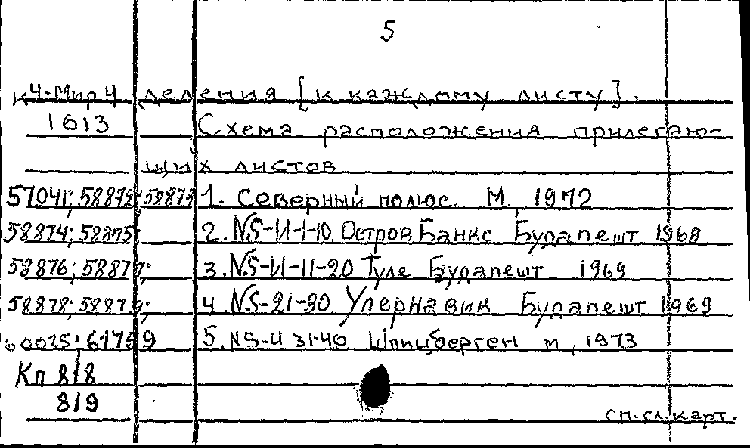 5
К4-Мир4 деления [к каждому листу].
1613 Схема расположения прилегаю-
щих листов
57041; 58872; 58873 1. Северный полюс. М. 1972
58874; 58875; 2. NS-U-1-10 Остров Банкс Будапешт 1969
58876; 58877; 3. NS-U-11-20 Туле Будапешт 1969
58878; 58879; 4. NS-21-30 Упернавик Будапешт 1969
60075; 61759 5. NS-U 31-40 Шпицберген М, 1973
Кп 818
819
сп.сл.карт.